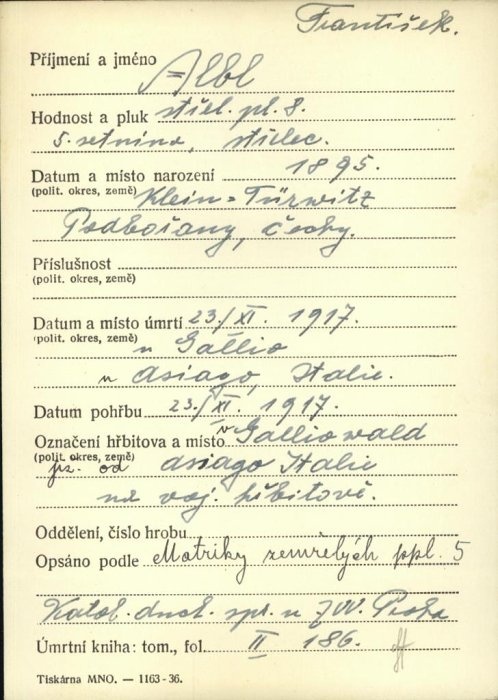 František.
Příjmení a jméno Albl
Hodnost a pluk střel. pl. 8.
5. setnina, střelec.
Datum a místo narození 1895.
(polit. okres, země) Klein-Türwitz
Podbořany, Čechy.
Příslušnost
(polit. okres, země)
Datum a místo úmrtí 23./XI. 1917.
(polit. okres, země) u Gallio
u Asiago, Italie.
Datum pohřbu 23./XI. 1917.
Označení hřbitova a místo v Galliowald
(polit. okres, země) jz. od Asiago Italie
na voj. hřbitově.
Oddělení, číslo hrobu
Opsáno podle Matriky zemřelých ppl. 5
Katol. duch. spr. u ZVV. Praha
Úmrtní kniha: tom., fol. II 186.
Tiskárna MNO. — 1163-36.